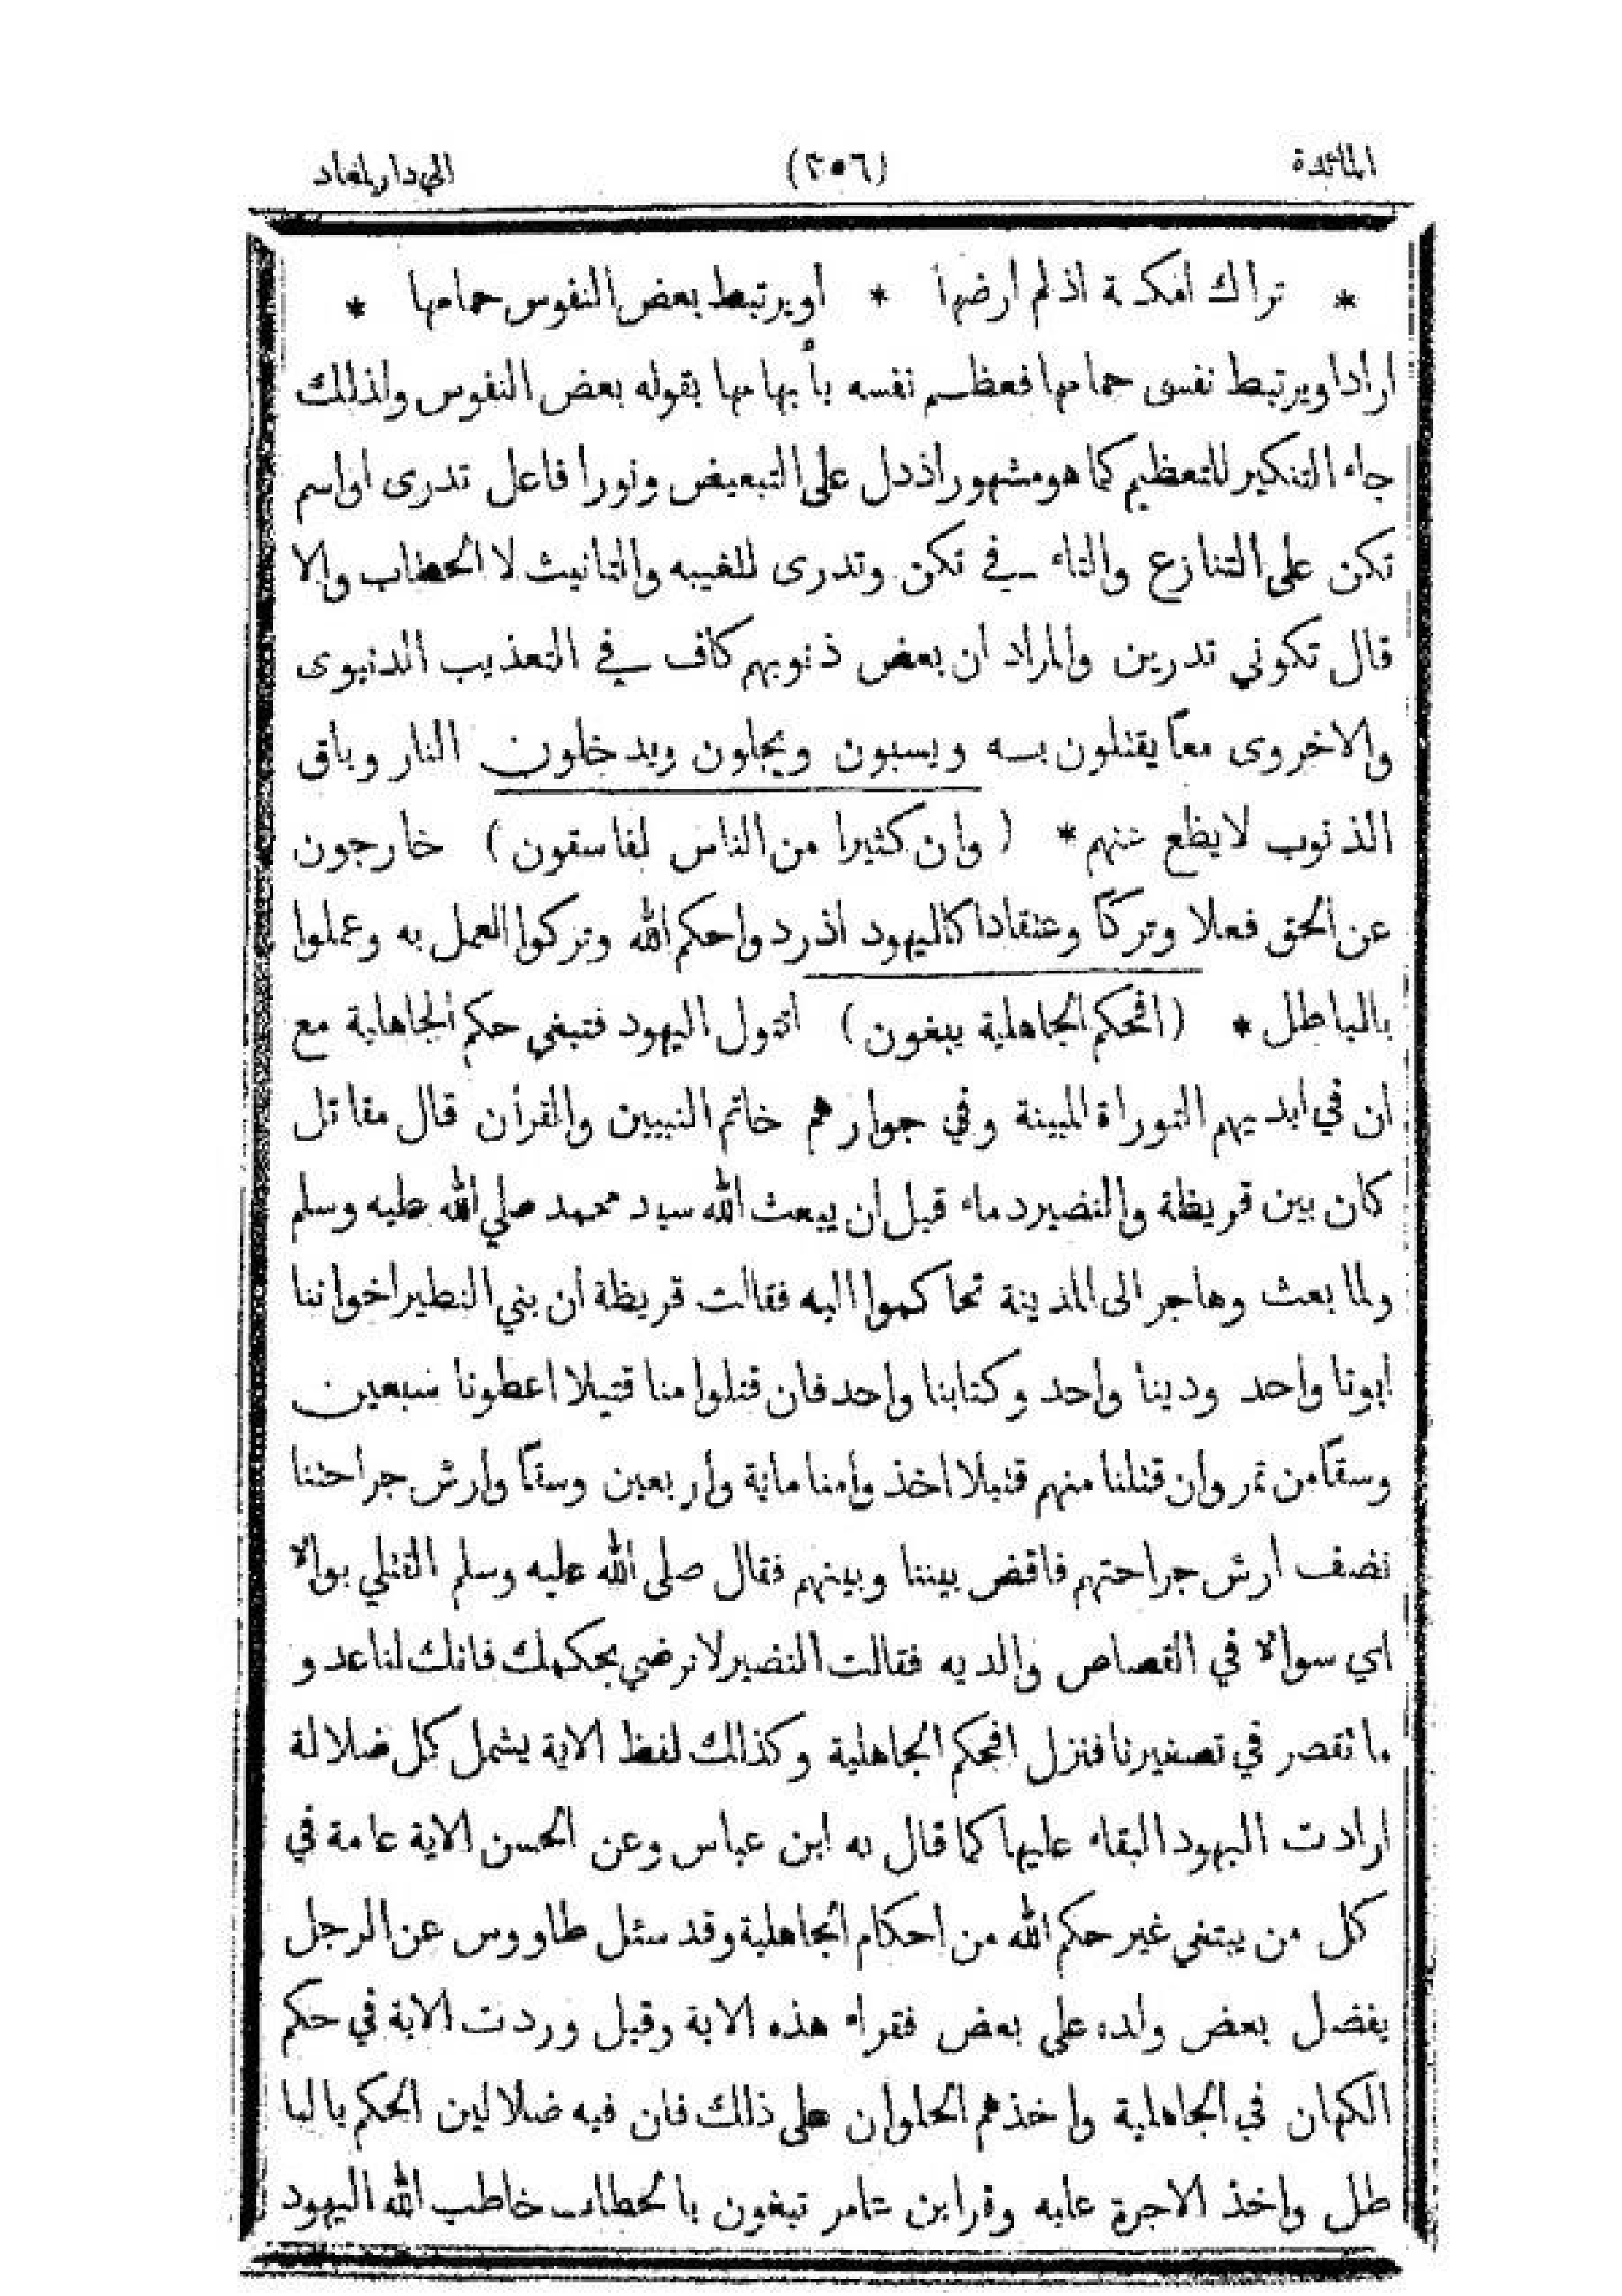 المائدة (٣٥٦) الي دار لمعاد
* تراك امكنة اذلم ارضها * أويرتبط بعض النفوس حمامها *
اراد اويرتبط نفسى حمامها فعظم نفسه بأبهامها بقوله بعض النفوس ولذلك
جاء التنكير للتعظيم كما هو مشهور اذدل على التبعيض ونورا فاعل تدرى اواسم
تكن على التنازع والتاء في تكن وتدرى للغيبه والتانيث لا الخطاب والا
قال تكوني تدرين والمراد ان بعض ذنوبهم كاف في التعذيب الدنيوى
والاخروى معاً يقتلون به ويسبون ويجلون ويدخلون النار وباقى
الذنوب لايظع عنهم * (وان كثيرا من الناس لفاسقون) خارجون
عن الحق فعلا وتركاً وعنقادا كاليهود اذردوا حكم الله وتركوا العمل به وعملوا
بالباطل * (افحكم الجاهلية يبغون) اتتول اليهود فتبغي حكم الجاهلية مع
ان في ايديهم التوراة المبينة وفي جوارهم خاتم النبيين والقرأن قال مقاتل
كان بين قريظة والنضير دماء قبل ان يبعث الله سيد محمد صلي الله عليه وسلم
ولما بعث وهاجر الى المدينة تحاكموا اليه فقالت قريظة ان بني النظير اخواننا
ابونا واحد ودينا واحد وكتابنا واحد فان قتلوا منا قتيلا اعطونا سبعين
وسقاً من تمر وان قتلنا منهم قتيلا اخذ وامنا ماية وأربعين وسقاً وارش جراحتنا
نصف ارش جراحتهم فاقض بيننا وبينهم فقال صلى الله عليه وسلم القتلي بواء
اي سواء في القصاص والديه فقالت النضير لا نرضي بحكمك فانك لنا عدو
ما تقصر في تصغيرنا فنزل افحكم الجاهلية وكذالك لفظ الاية يشمل كل ضلالة
ارادت اليهود البقاء عليها كما قال به ابن عباس وعن الحسن الاية عامة في
كل من يبتغي غير حكم الله من احكام الجاهلية وقد سئل طاووس عن الرجل
يفضل بعض ولده علي بعض فقراء هذه الاية وقيل وردت الاية في حكم
الكهان في الجاهلية واخذهم الحلوان على ذلك فان فيه ضلالين الحكم بالبا
طل واخذ الاجرة عليه وقرا ابن عامر تبغون بالخطاب خاطب الله اليهود